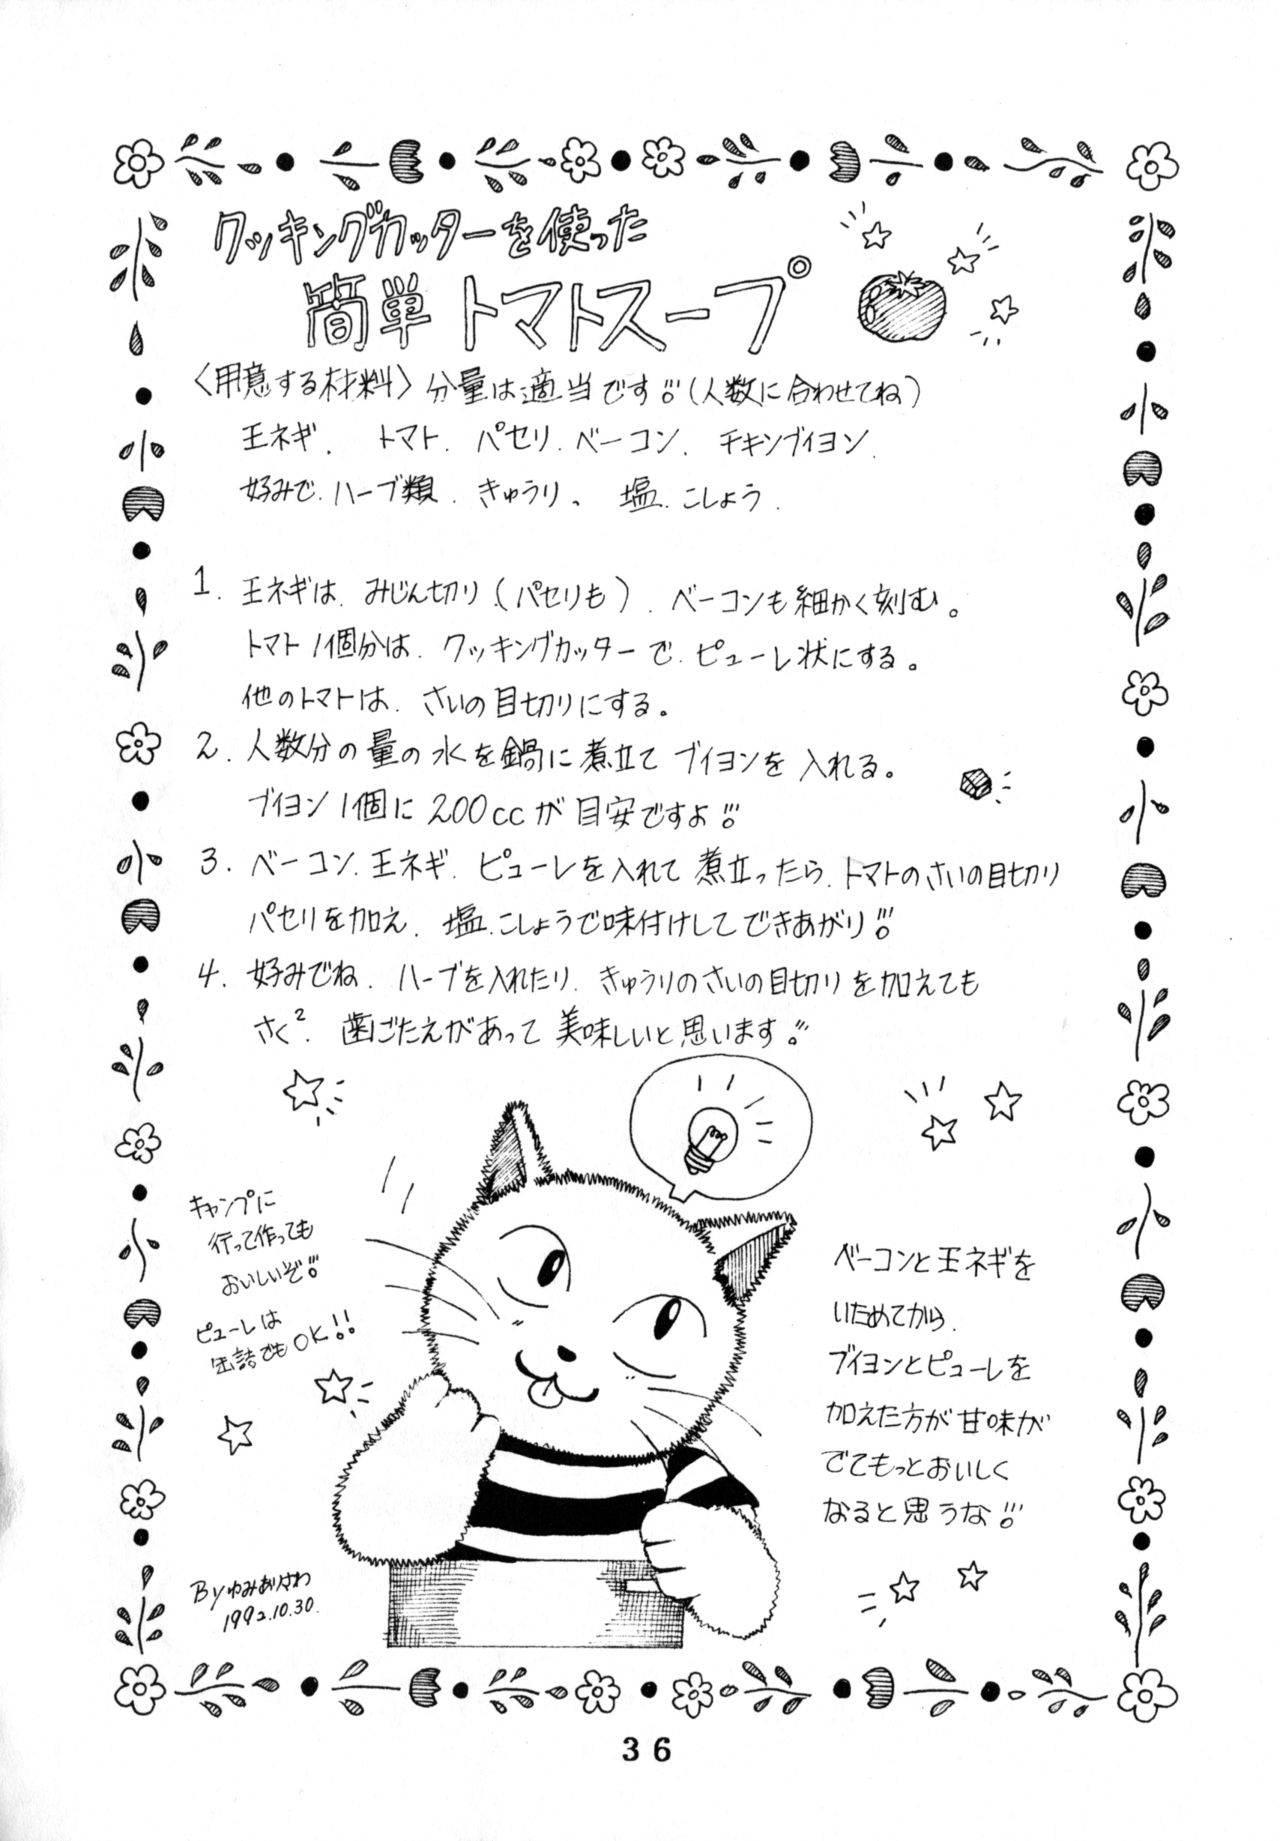 クッキングカッターを使った
簡単トマトスープ
〈用意する材料〉分量は適当です!!(人数に合わせてね)
玉ネギ、トマト、パセリ、ベーコン、チキンブイヨン、
好みで、ハーブ類、きゅうり。塩、こしょう、
1. 玉ネギは、みじん切り(パセリも)、ベーコンも細かく刻む。
トマト1個分は、クッキングカッターで、ピューレ状にする。
他のトマトは、さいの目切りにする。
2. 人数分の量の水を鍋に煮立てブイヨンを入れる。
ブイヨン1個に200ccが目安ですよ!!!
3. ベーコン、玉ネギ、ピューレを入れて煮立ったら、トマトのさいの目切り
パセリを加え、塩、こしょうで味付けしてできあがり!!!
4. 好みでね、ハーブを入れたり、きゅうりのさいの目切りを加えても
さく²、歯ごたえがあって美味しいと思います!!!
キャンプに
行って作っても
おいしいぞ!!!
ピューレは
缶詰でもOK!!
ベーコンと玉ネギを
いためてから、
ブイヨンとピューレを
加えた方が甘味が
でてもっとおいしく
なると思うな!!!
Byゆみあいざわ
1992.10.30.
36